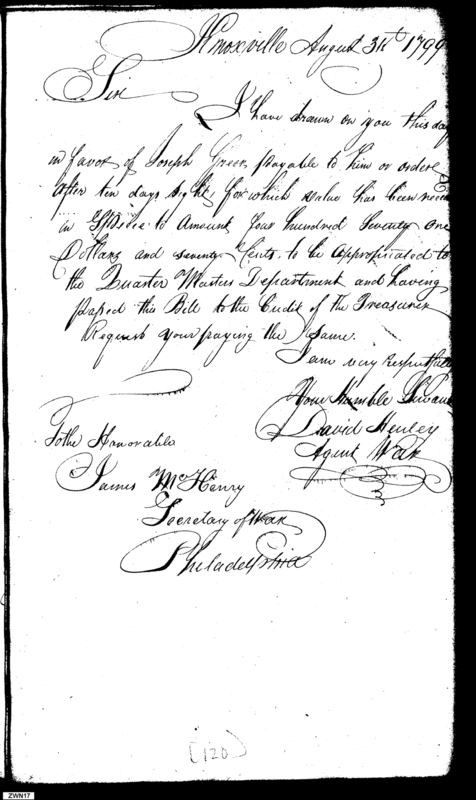 Knoxville August 31st 1799
Sir
I have drawn on you this day
in favor of Joseph Greer payable to him or order
after ten days sight, for which value has been recd
in Specie to Amount four hundred Seventy one
Dollars and seventy Cents. to be appropriated to
the Quarter Masters Department and having
passed this Bill to the Credit of The Treasurer
Request your paying the Same.
I am very respectfully
Your Humble Servant
David Henley
Agent War
To the Honorable
James McHenry
Secretary of War
Philadelphia
[120]
ZWN17